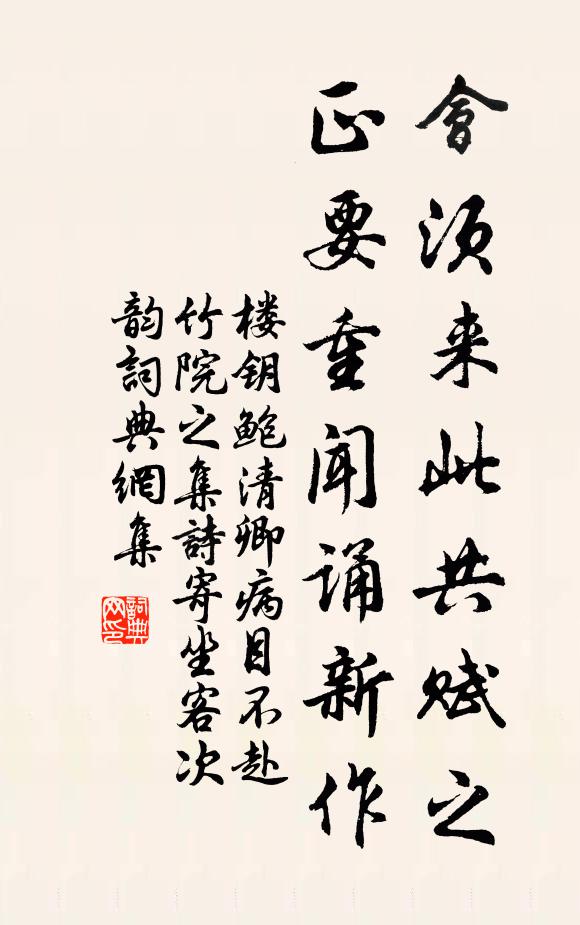 會须来此共赋之
正要重闻诵新作
楼钥鲍清卿病目不赴
竹院之集詩寄坐客次
韵詞典網集
詞典网印